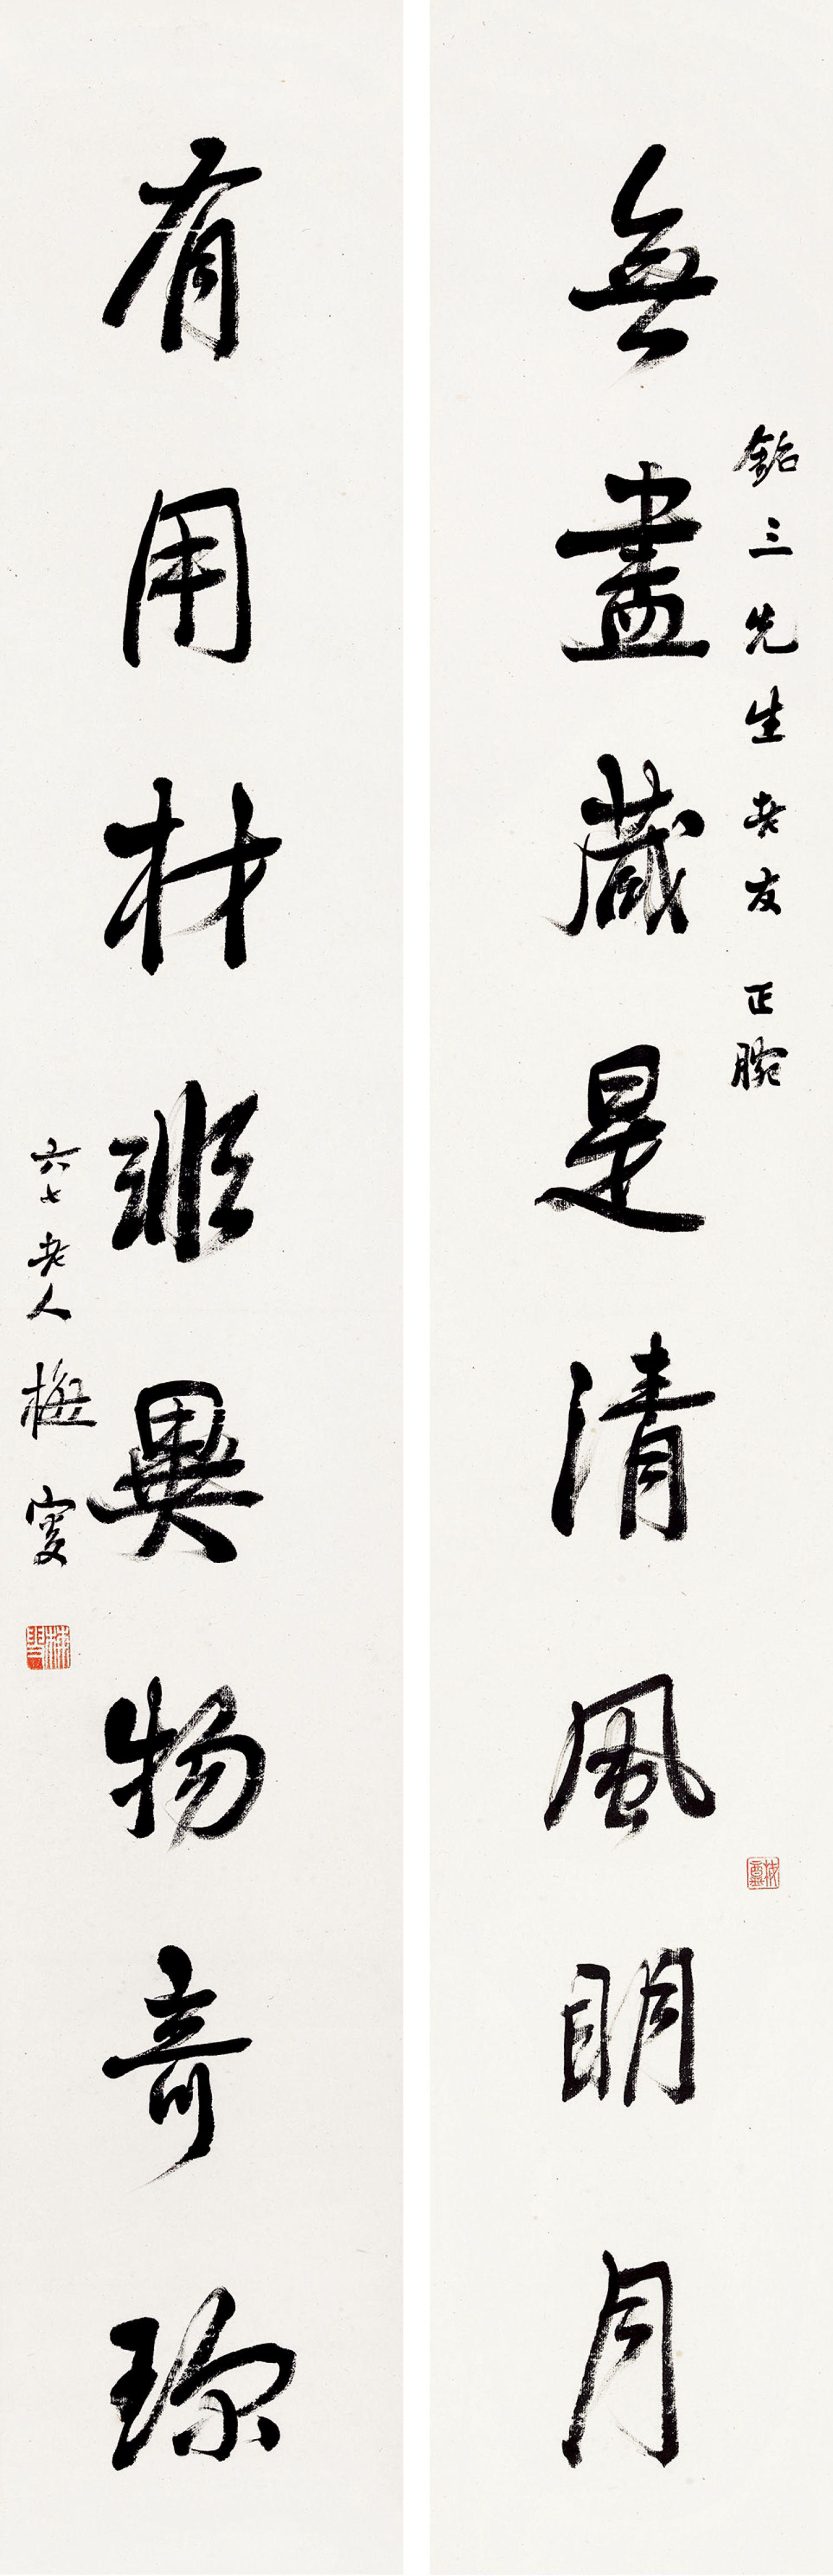 無盡藏是清風明月
銘三先生老友正腕
有用材非異物奇珍
六七老人梅叟